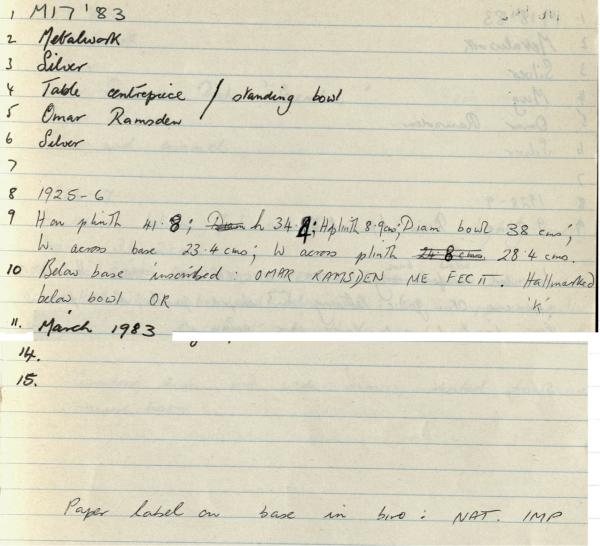 1 M17 '83
2 Metalwork
3 Silver
4 Table centrepiece / standing bowl
5 Omar Ramsden
6 Silver
7
8 1925-6
9 H on plinth 41.8; Diam h 34.4; H plinth 8.9cms; Diam bowl 38 cms;
W. across base 23.4 cms; W across plinth 24.8 cms. 28.4 cm.
10 Below base inscribed: OMAR RAMSDEN ME FECIT. Hallmarked
below bowl OR 'K';
11. March 1983
14.
15.
Paper label on base in biro: NAT. IMP